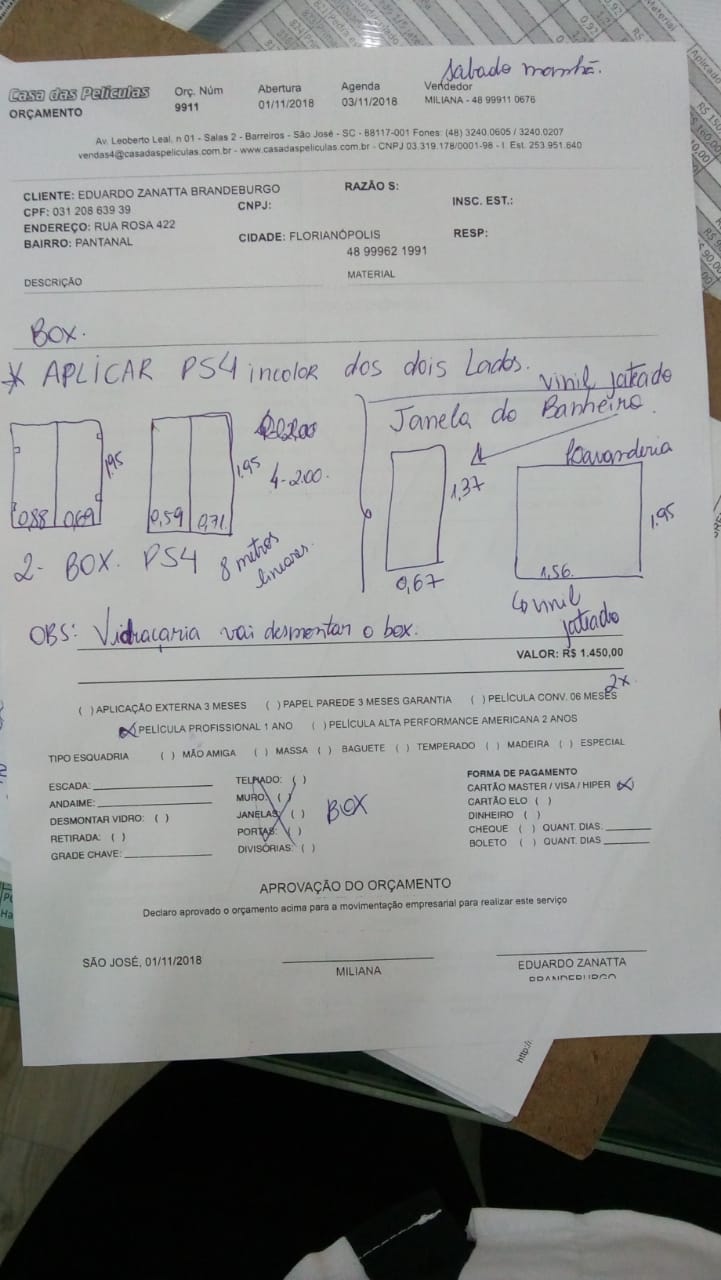 Sabado manhã.
Casa das Películas
ORÇAMENTO
Orç. Núm
9911
Abertura
01/11/2018
Agenda
03/11/2018
Vendedor
MILIANA - 48 99911 0676
Av. Leoberto Leal, n 01 - Salas 2 - Barreiros - São José - SC - 88117-001 Fones: (48) 3240.0605 / 3240.0207
vendas4@casadaspeliculas.com.br - www.casadaspeliculas.com.br - CNPJ 03.319.178/0001-98 - I. Est. 253.951.640
CLIENTE: EDUARDO ZANATTA BRANDEBURGO
RAZÃO S:
CPF: 031 208 639 39
CNPJ:
INSC. EST.:
ENDEREÇO: RUA ROSA 422
BAIRRO: PANTANAL
CIDADE: FLORIANÓPOLIS
RESP:
48 99962 1991
DESCRIÇÃO
MATERIAL
BOX.
* APLICAR PS4 incolor dos dois Lados.
vinil jateado
Janela do Banheiro.
Lavanderia
0,88 0,69 1,95
0,59 0,71 1,95
4-2.00.
1,37
0,67
1,95
1,56.
2- BOX. PS4 8 metros lineares.
vinil jateado
OBS: Vidraçaria vai desmontar o box.
VALOR: R$ 1.450,00
2x
( ) APLICAÇÃO EXTERNA 3 MESES ( ) PAPEL PAREDE 3 MESES GARANTIA ( ) PELÍCULA CONV. 06 MESES
(X) PELÍCULA PROFISSIONAL 1 ANO ( ) PELÍCULA ALTA PERFORMANCE AMERICANA 2 ANOS
TIPO ESQUADRIA ( ) MÃO AMIGA ( ) MASSA ( ) BAGUETE ( ) TEMPERADO ( ) MADEIRA ( ) ESPECIAL
ESCADA:
ANDAIME:
DESMONTAR VIDRO: ( )
RETIRADA: ( )
GRADE CHAVE:
TELHADO: ( )
MURO: ( )
JANELAS: ( )
PORTAS: ( )
DIVISÓRIAS: ( )
BOX
FORMA DE PAGAMENTO
CARTÃO MASTER / VISA / HIPER (X)
CARTÃO ELO ( )
DINHEIRO ( )
CHEQUE ( ) QUANT. DIAS:
BOLETO ( ) QUANT. DIAS
APROVAÇÃO DO ORÇAMENTO
Declaro aprovado o orçamento acima para a movimentação empresarial para realizar este serviço
SÃO JOSÉ, 01/11/2018
MILIANA
EDUARDO ZANATTA
BRANDEBURGO
http:/